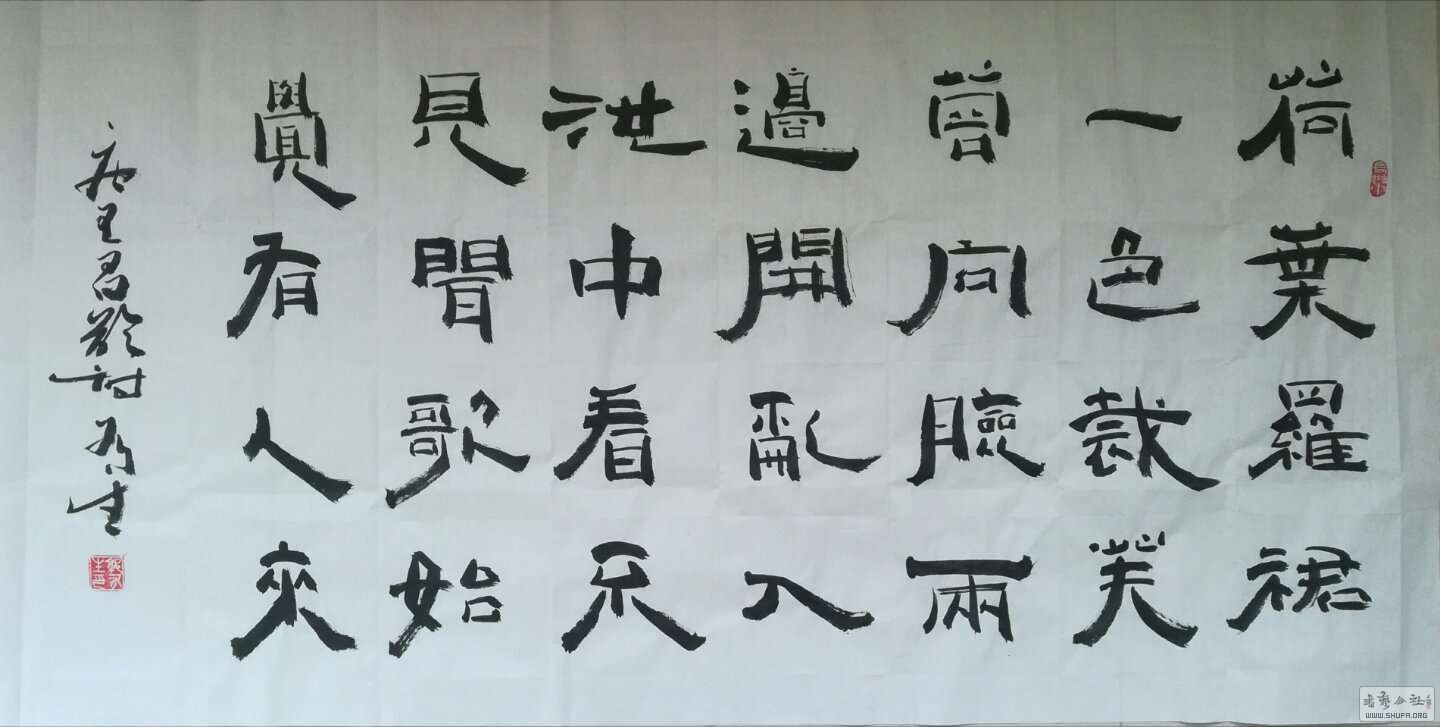 荷葉羅裙
一色裁芙
蓉向臉兩
邊開亂入
池中看不
見聞歌始
覺有人來
唐王昌齡詩 生
書藝公社
WWW.SHUFA.ORG